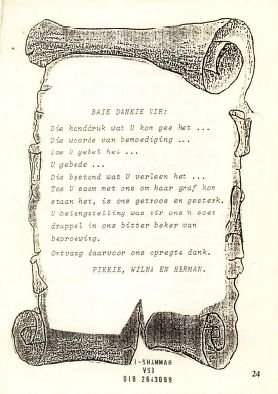 BAIE DANKIE VIR:
Die handdruk wat U kon gee het ...
Die woorde van bemoediging ...
Toe U gebel het ...
U gebede ...
Die bystand wat U verleen het ...
Toe U saam met ons om haar graf kon
staan het, is ons getroos en gesterk.
U belangstelling was vir ons 'n soet
druppel in ons bitter beker van
beproewing.
Ontvang daarvoor ons opregte dank.
PIKKIE, WILNA EN HERMAN.
-SHAMMAH
VSD
018 2643098
24